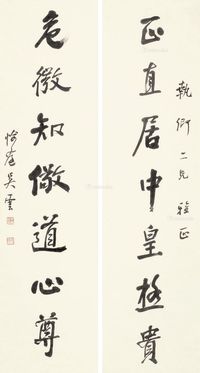 執衡二兄雅正
正直居中皇極貴
危微知儆道心尊
愉庭吳雲